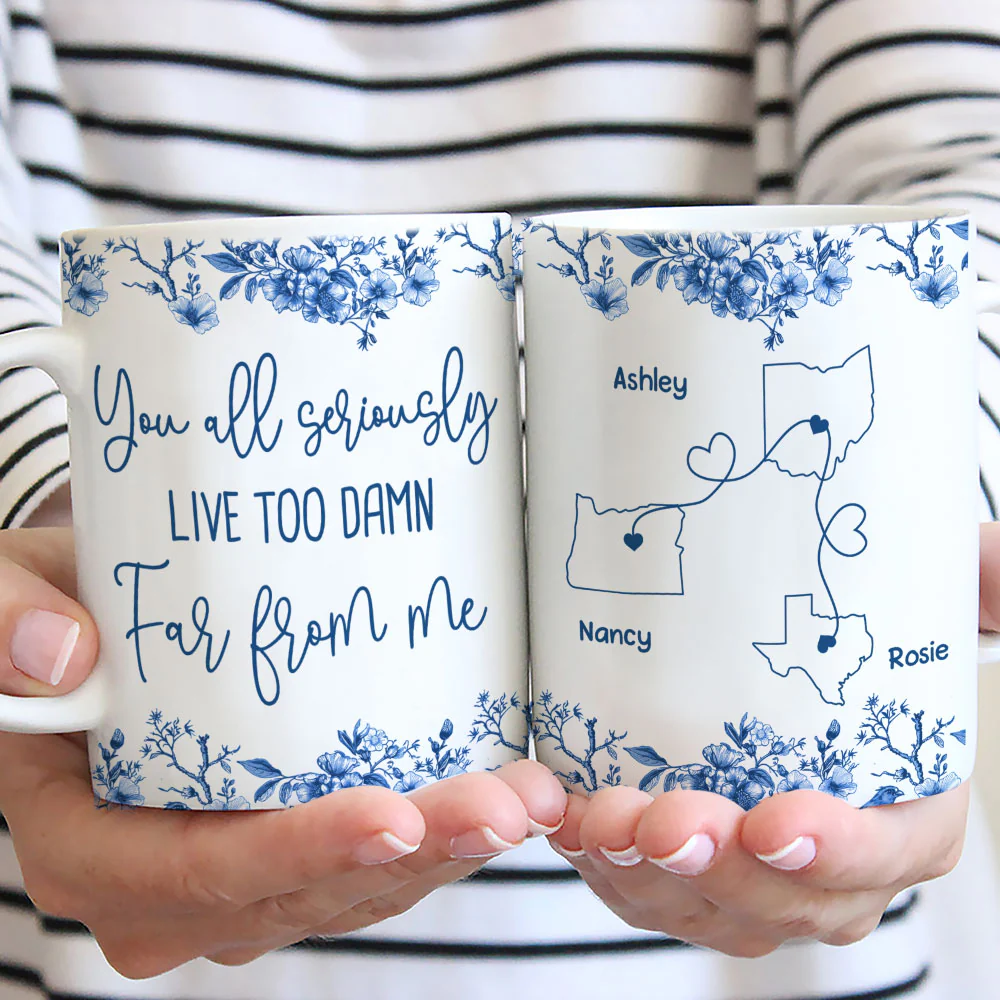 You all seriously
LIVE TOO DAMN
Far from me
Ashley
Nancy
Rosie